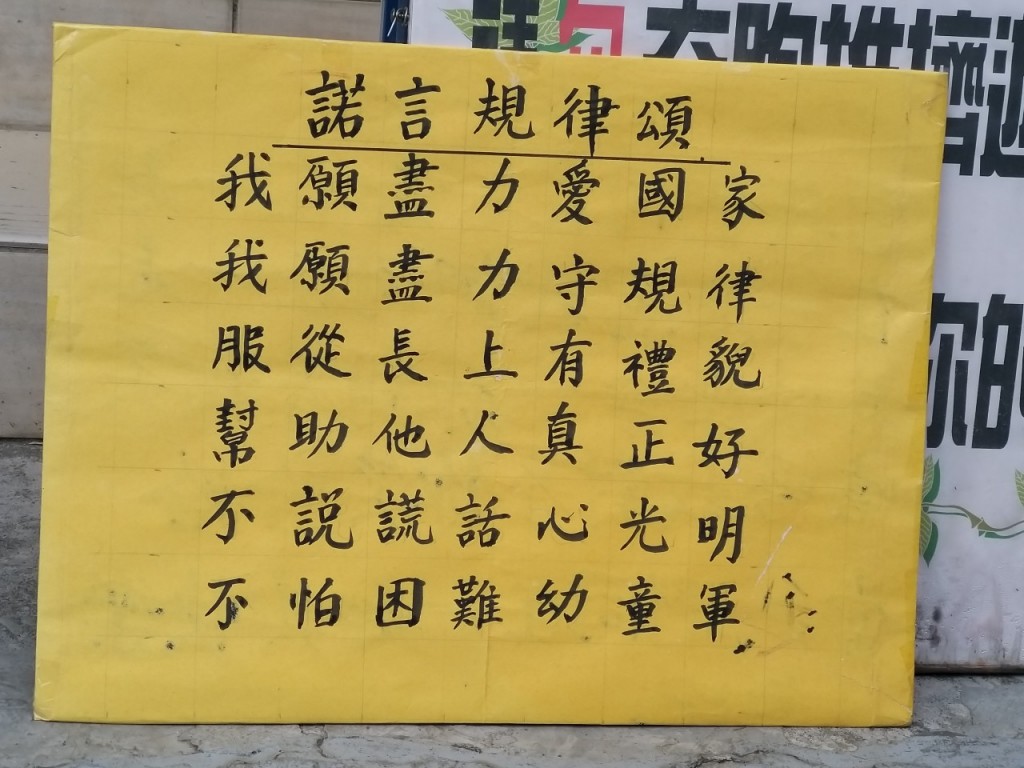 諾言規律頌
我願盡力愛國家
我願盡力守規律
服從長上有禮貌
幫助他人真正好
不說謊話心光明
不怕困難幼童軍
你的